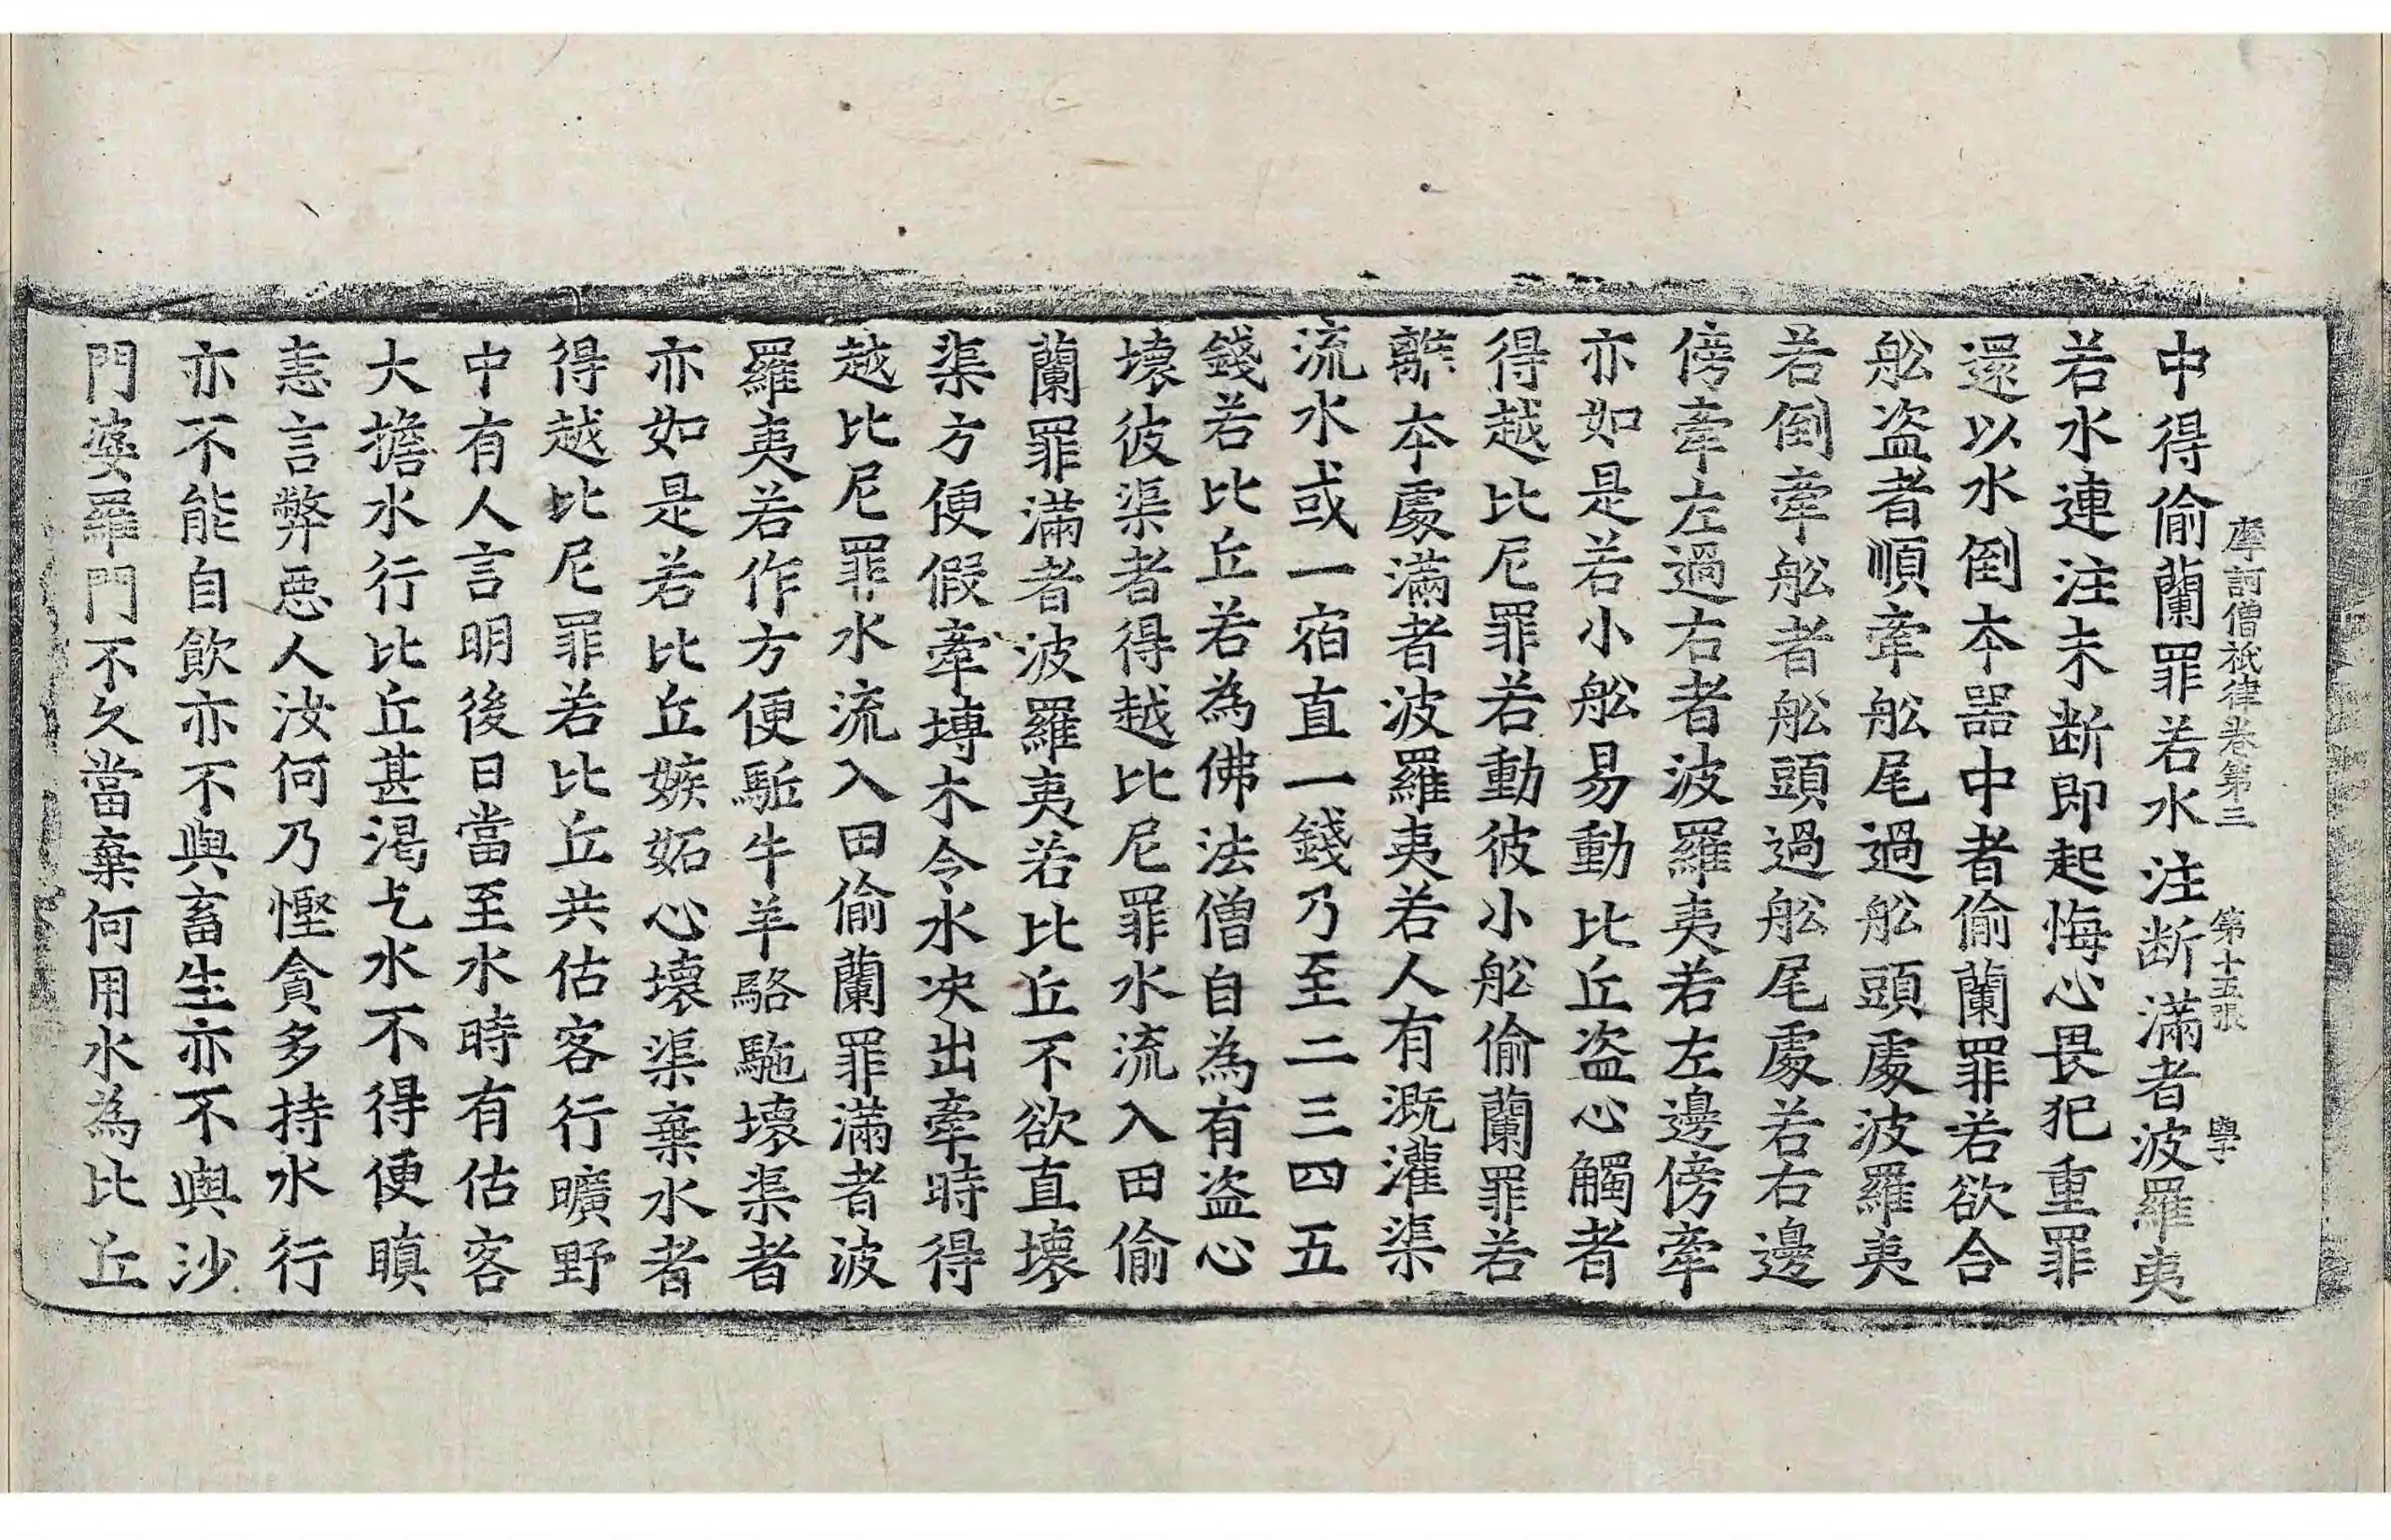 摩訶僧祇律卷第三 第十五張 學
中得偷蘭罪若水注断滿者波羅夷
若水連注未断即起悔心畏犯重罪
還以水倒本器中者偷蘭罪若欲合
舩盗者順牽舩尾過舩頭處波羅夷
若倒牽舩者舩頭過舩尾處若右邊
傍牽左過右者波羅夷若左邊傍牽
亦如是若小舩易動比丘盗心觸者
得越比尼罪若動彼小舩偷蘭罪若
離本處滿者波羅夷若人有溉灌渠
流水或一宿直一錢乃至二三四五
錢若比丘若為佛法僧自為有盗心
壞彼渠者得越比尼罪水流入田偷
蘭罪滿者波羅夷若比丘不欲直壞
渠方便假牽塼木令水决出牽時得
越比尼罪水流入田偷蘭罪滿者波
羅夷若作方便駈牛羊駱駞壞渠者
亦如是若比丘嫉妬心壞渠棄水者
得越比尼罪若比丘共估客行曠野
中有人言明後日當至水時有估客
大擔水行比丘甚渇乞水不得便瞋
恚言弊惡人汝何乃慳貪多持水行
亦不能自飲亦不與畜生亦不與沙
門婆羅門不久當棄何用水為比丘